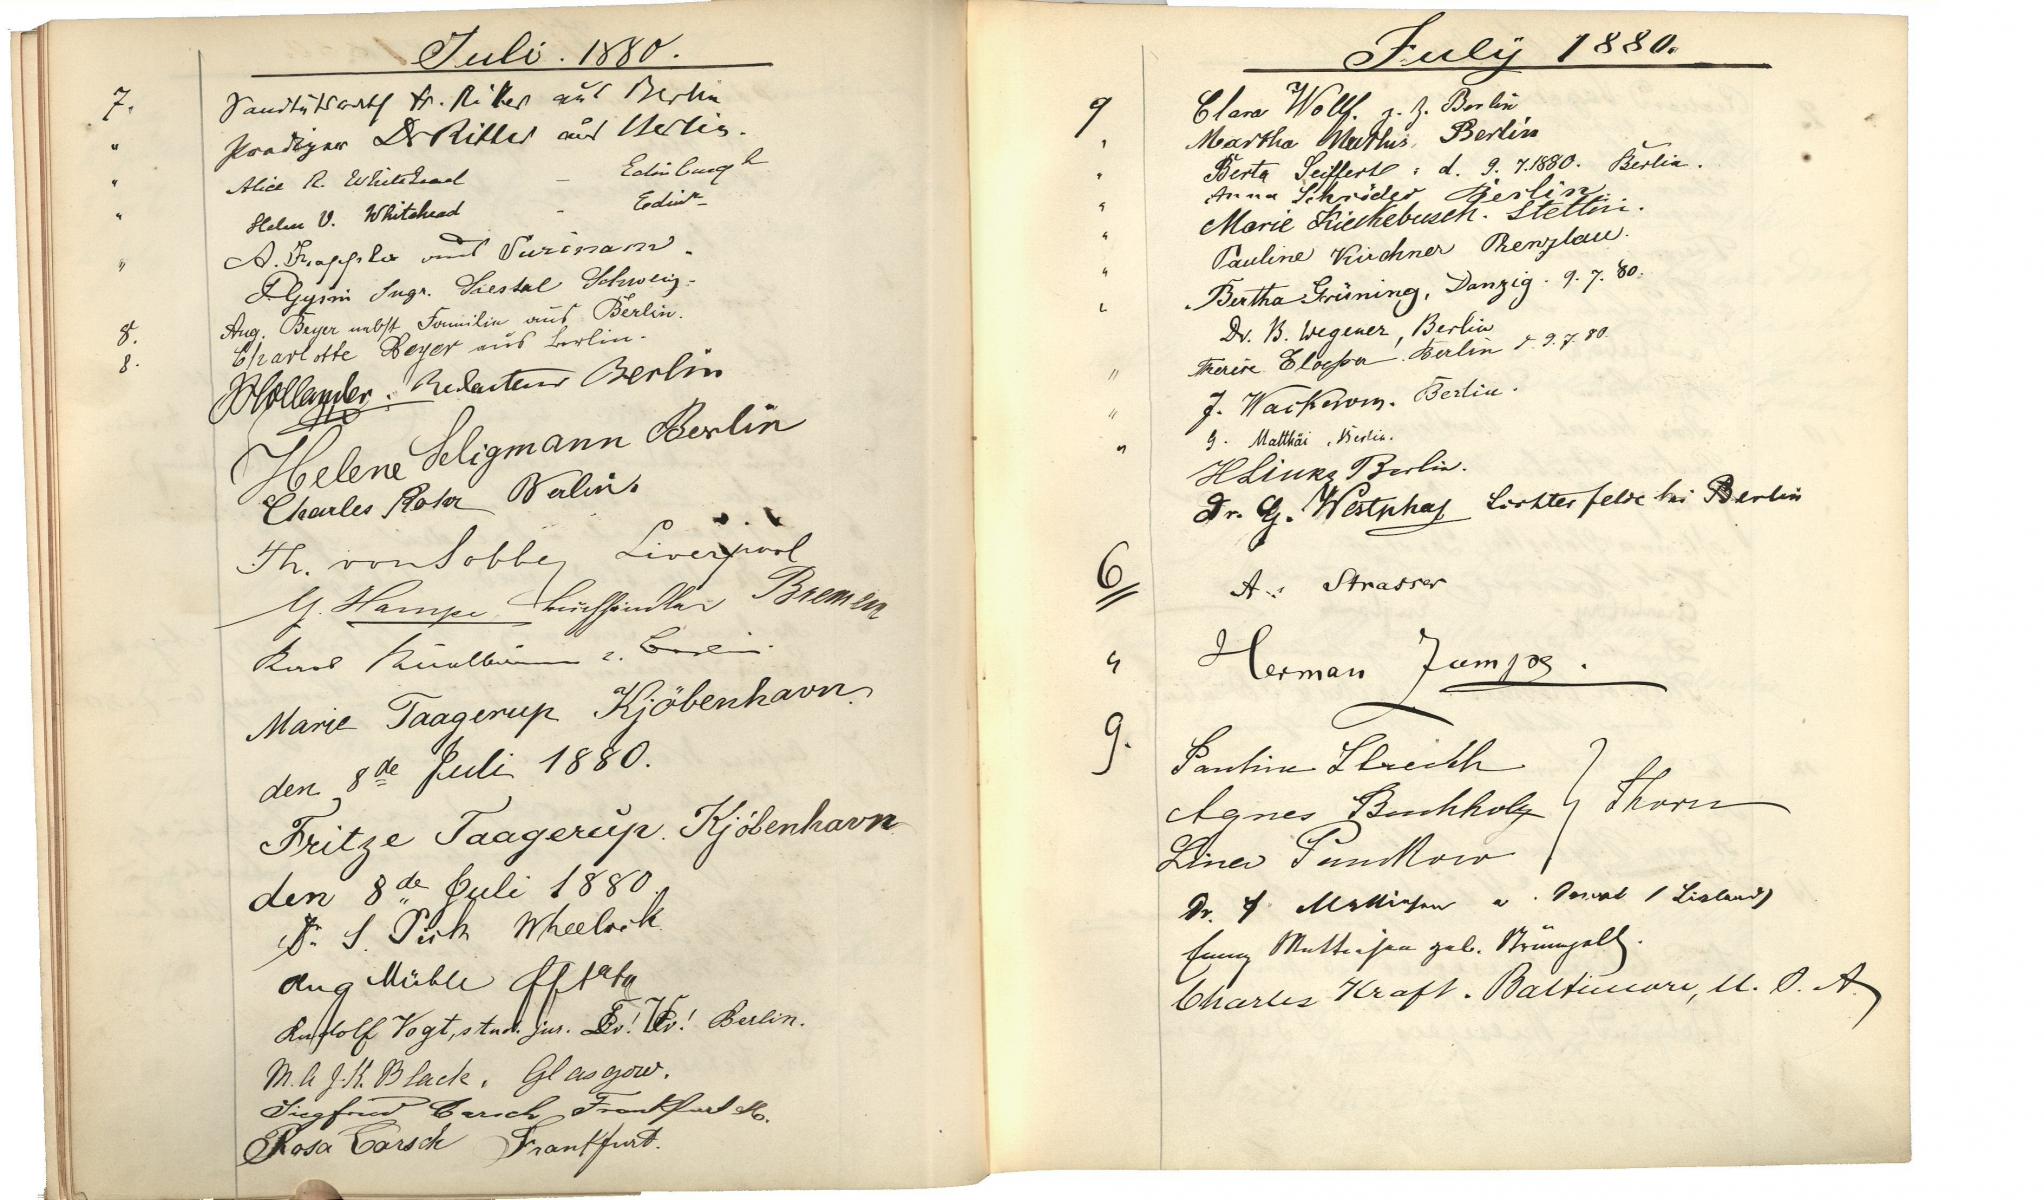 Juli. 1880.
7. Dr. Ritter aus Berlin
" Prediger Dr Ritter aus Berlin.
" Alice R. Whitehead - Edinburgh
" Helen V. Whitehead - Edinr
" A. Kappler aus Surinam.
Gysin Ingr. Liestal Schweiz.
8. Aug. Beyer nebst Familie aus Berlin.
8. Charlotte Beyer aus Berlin.
Hollander. Redacteur Berlin
Helene Seligmann Berlin
Charles Rohr Berlin.
Th. von Sobbe, Liverpool
Hampe Buchhändler Bremen
Marie Taagerup Kjöbenhavn.
den 8de Juli 1880.
Fritze Taagerup. Kjøbenhavn
den 8de Juli 1880.
Dr. S. Wheelock
Aug Mühle
Rudolf Vogt, stud. jur. Berlin.
M. A J. K. Black, Glasgow.
Siegfried Carsch Frankfurt M.
Rosa Carsch Frankfurt.
July 1880.
9 Clara Wolff. z. Z. Berlin
" Martha Mathis, Berlin
" Berta Seiffert: d. 9. 7. 1880. Berlin.
" Anna Schröder Berlin.
Marie Kiekebusch. Stettin.
" Pauline Kirchner Prenzlau.
" Bertha Grüning, Danzig. 9. 7. 80.
Dr. B. Wegener, Berlin
Therese Berlin d. 9. 7. 80.
" J. Berlin.
" G. Matthäi, Berlin.
" H Berlin.
Dr. G. Westphal Lichterfelde bei Berlin
6 A. Strasser
" Herman
9. Pauline
Agnes Buchholz } Thorn
Lina Pankow
Dr.
geb.
Charles Kraft. Baltimore, U. S. A.